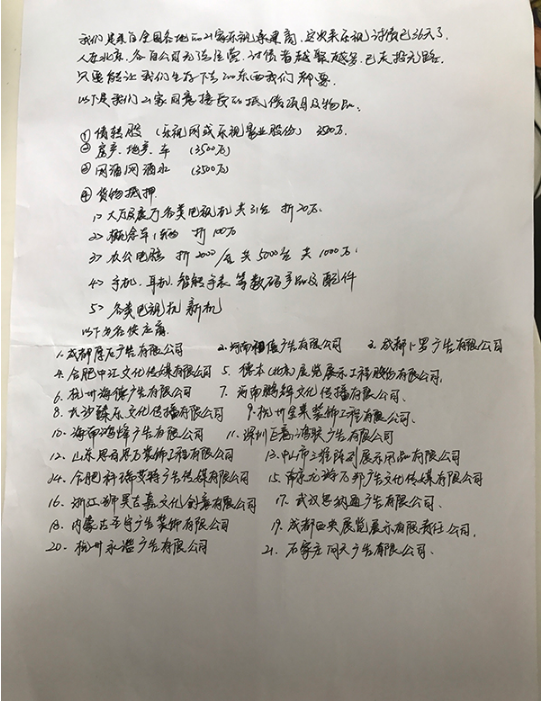 我们是来自全国各地的21家乐视承建商,这次来乐视讨债已36天了.
人在北京,各自公司无法经营,讨债者越聚越多,已走投无路.
只要能让我们生存下去的东西我们都要.
以下是我们21家同意接受的抵偿项目及物品.
① 债转股 (乐视网或乐视影业股份) 3500万.
② 房产.地产.车 (3500万)
③ 网酒网酒水 (3500万)
④ 货物抵押
1> 大厦展厅各类电视机 共31台 折20万.
2> 概念车1辆 折100万
3> 办公电脑 折2000/台 共5000台 共1000万.
4> 手机、耳机、智能手表 等数码产品及配件
5> 各类电视机 新机
以下为各供应商.
1. 成都 广告有限公司 2. 河南 广告有限公司 3. 成都 广告有限公司
4. 合肥中江文化传媒有限公司 5. 德本(北京)展览展示工程股份有限公司.
6. 杭州海德广告有限公司 7. 河南鹏辉文化传播有限公司.
8. 长沙臻乐文化传播有限公司 9. 杭州全景装饰工程有限公司.
10. 海南鸿烽广告有限公司 11. 深圳巨嘉鸿联广告有限公司
12. 山东思自果万装饰工程有限公司 13. 中山市工程陈列展示用品有限公司
14. 合肥科瑞艾特广告传媒有限公司 15. 南京龙游万邦广告文化传媒有限公司
16. 浙江狮昊吉嘉文化创意有限公司 17. 武汉思纳通广告有限公司.
18. 内蒙古 广告装饰有限公司 19. 成都西央展览展示有限责任公司.
20. 杭州永滔广告有限公司 21. 石家庄问天广告有限公司.